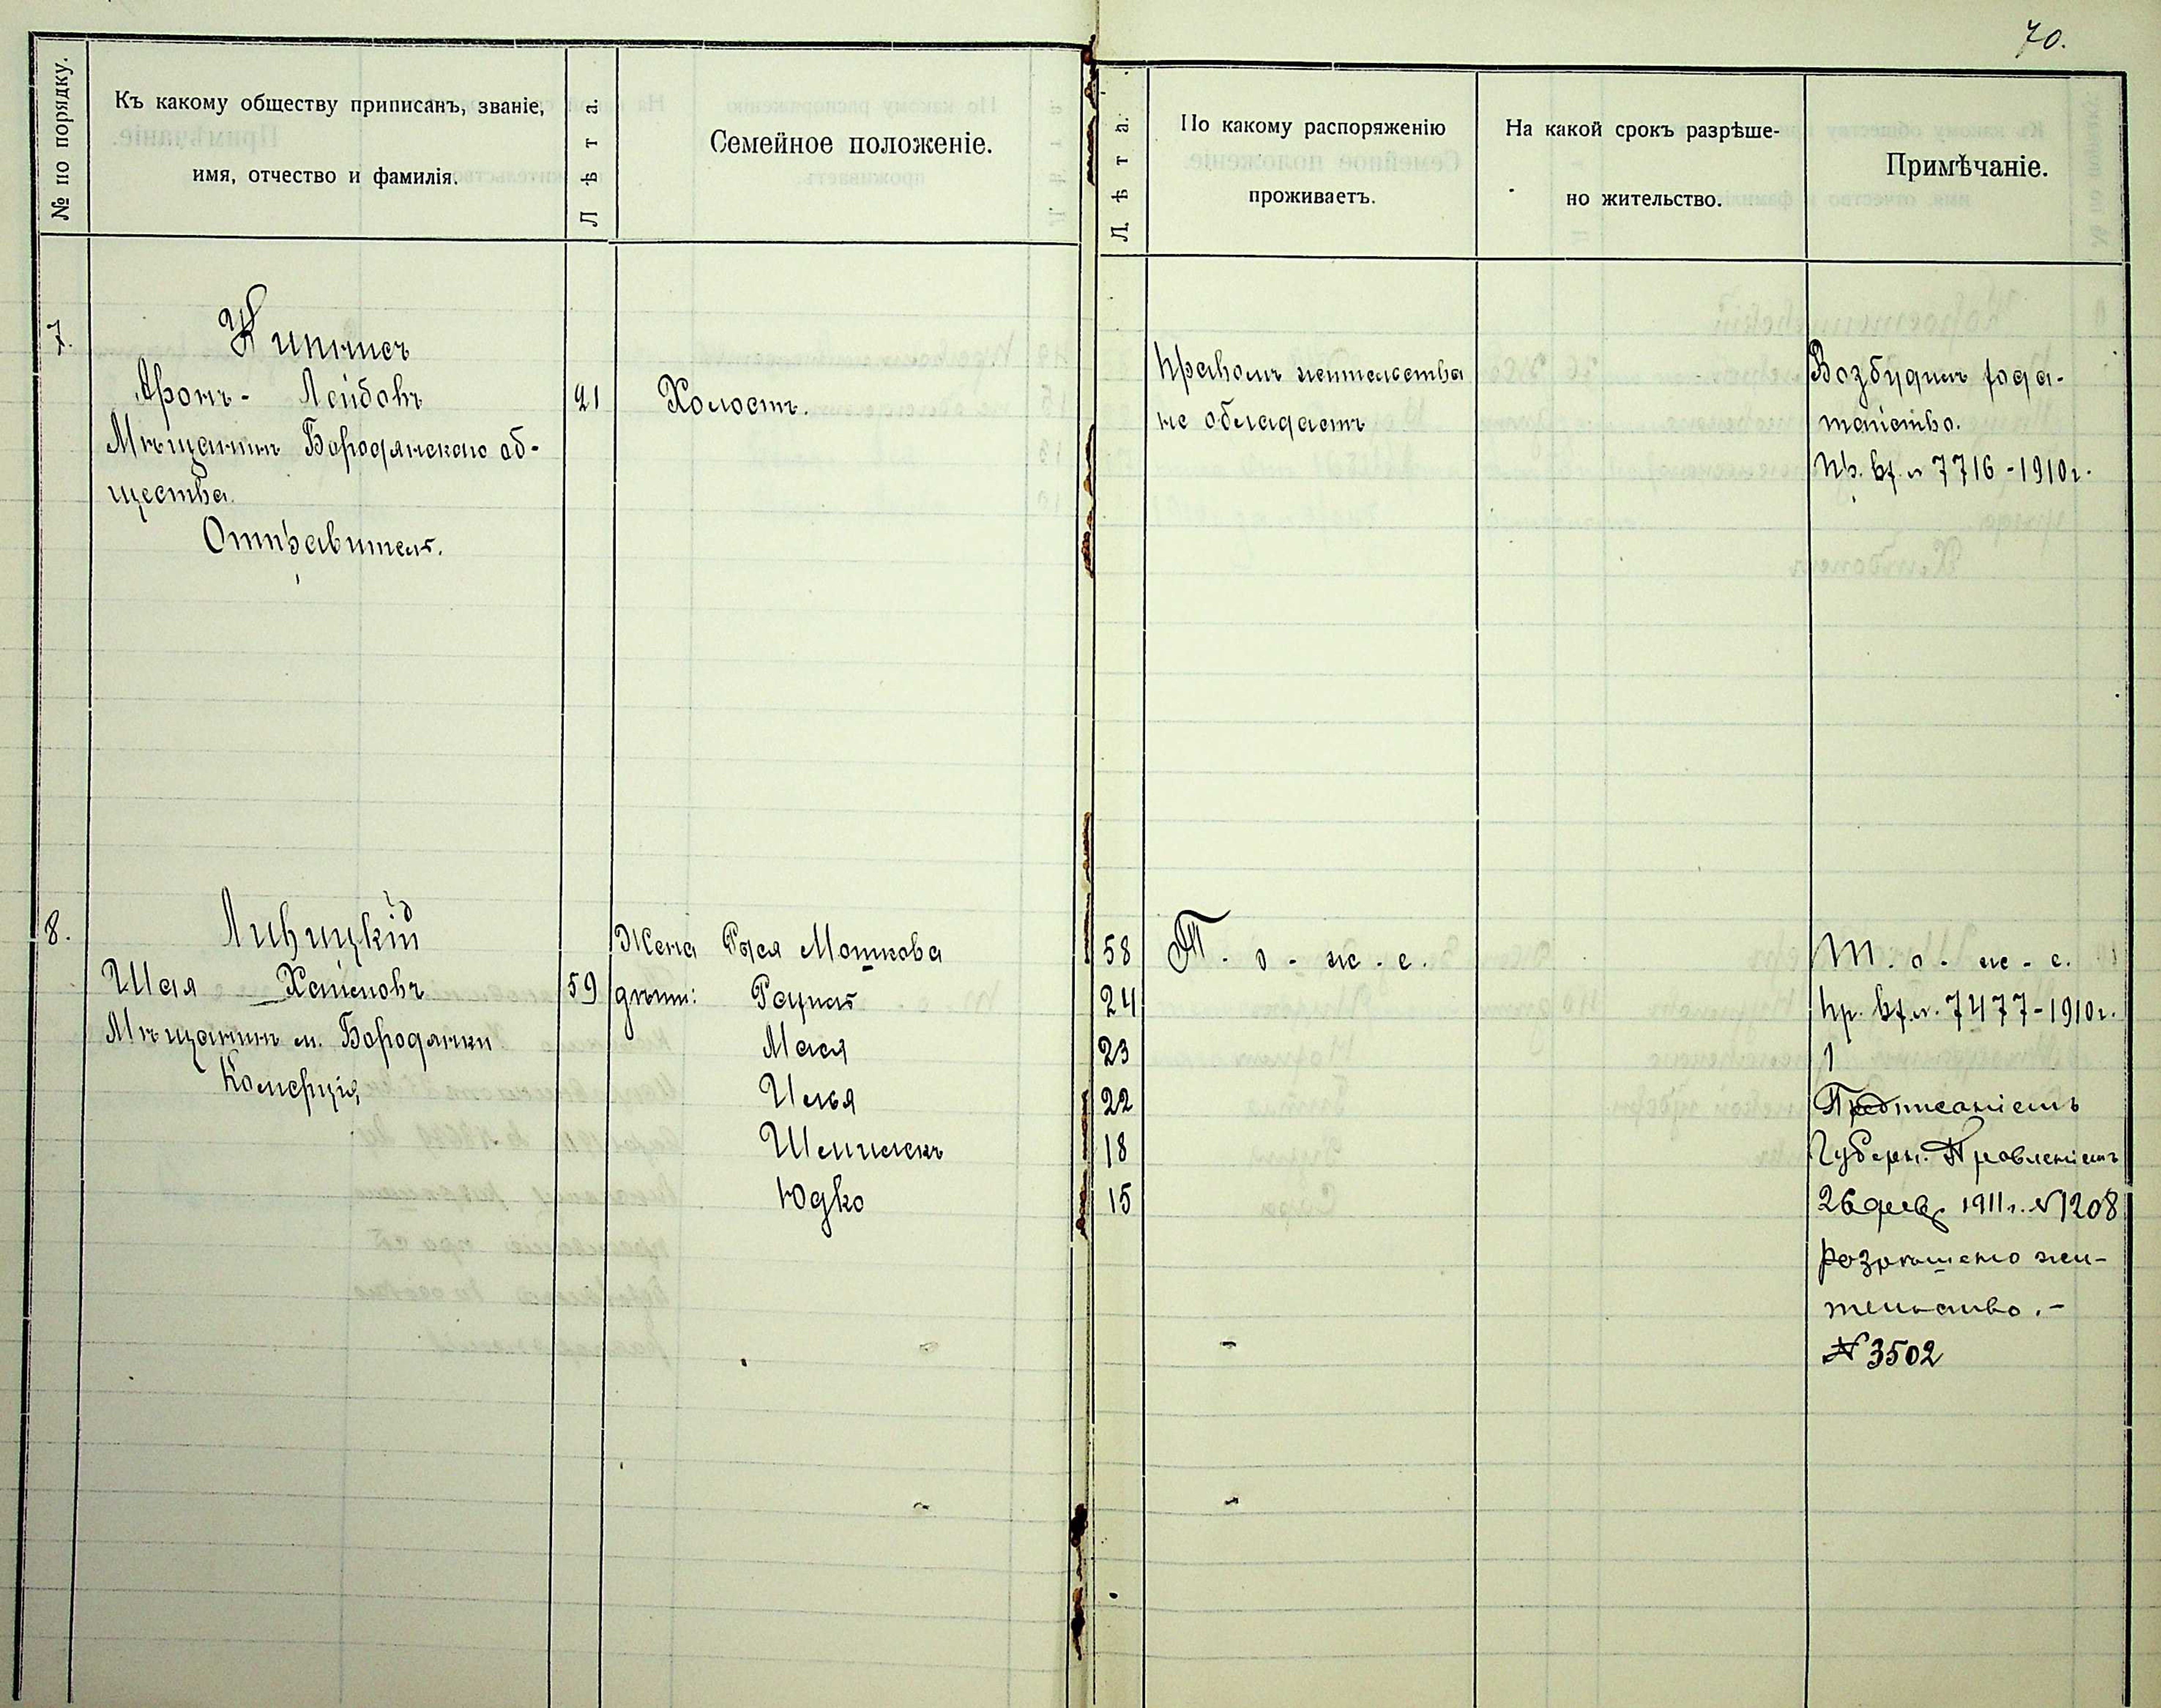 70.
№ по порядку.
Къ какому обществу приписанъ, званіе,
имя, отчество и фамилія.
Лѣта.
Семейное положеніе.
Лѣта.
По какому распоряженію
проживаетъ.
На какой срокъ разрѣше-
но жительство.
Примѣчаніе.
7.
Кипнисъ
Аронъ - Лейбовъ
21
Холостъ.
Мѣщанинъ Бородянскаго об-
щества.
Отправитель.
Правомъ жительства
не обладаетъ
Возбудилъ хода-
тайство.
Пр. вх. № 7716 - 1910 г.
8.
Ливицкій
Шая Хаимовъ
59
Мѣщанинъ м. Бородянки
Комерція
Жена Рыся Мошкова 58
дѣти: Рахиль 24
Мася 23
Илья 22
Шмилекъ 18
Юдко 15
Т. о - ж - е.
Т. о - ж - е.
Пр. вх. №. 7477 - 1910 г.
1
Предписаніемъ
Губерн. Правленіемъ
26 февр 1911 г. № 1208
разрѣшено жи-
тельство. -
№ 3502